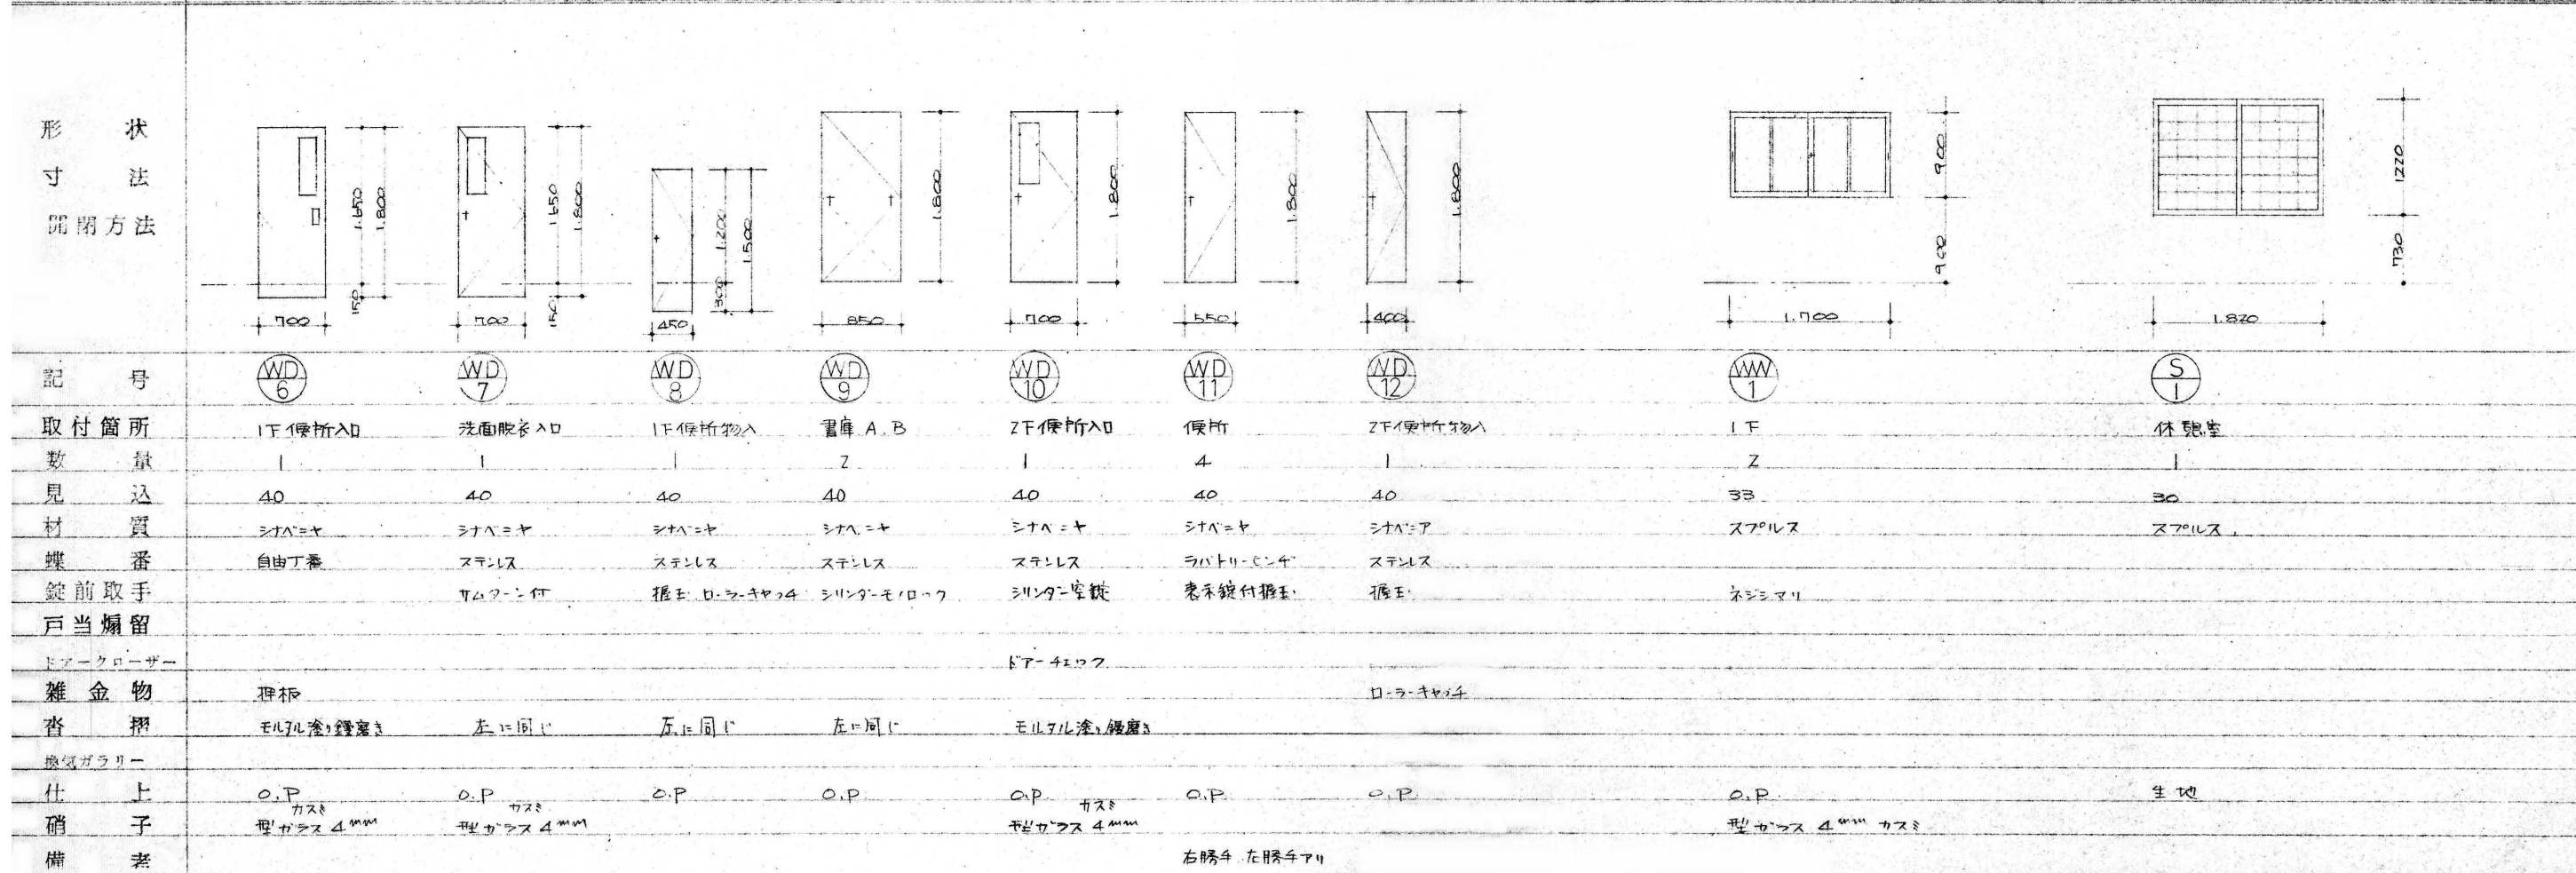 形状
寸法
開閉方法
1.650 1.800 150 700
1.650 1.800 150 700
1.200 1.500 300 450
1.800 850
1.800 700
1.800 550
1.800 400
900 900 1.700
1220 730 1.820
記号 WD 6 WD 7 WD 8 WD 9 WD 10 WD 11 WD 12 WW 1 S 1
取付箇所 1F便所入口 洗面脱衣入口 1F便所物入 書庫 A.B 2F便所入口 便所 2F便所物入 1F 休憩室
数量 1 1 1 2 1 4 1 2 1
見込 40 40 40 40 40 40 40 33 30
材質 シナベニヤ シナベニヤ シナベニヤ シナベニヤ シナベニヤ シナベニヤ シナベニア スプルス スプルス
蝶番 自由丁番 ステンレス ステンレス ステンレス ステンレス ラバトリーヒンヂ ステンレス
錠前取手 サムターン付 握玉 ローラーキャッチ シリンダーモノロック シリンダー空錠 表示錠付握玉 握玉 ネジシマリ
戸当煽留
ドアークローザー ドアーチェック
雑金物 押板 ローラーキャッチ
沓摺 モルタル塗り鏝磨き 左に同じ 左に同じ 左に同じ モルタル塗り鏝磨き
換気ガラリー
仕上 O.P O.P O.P O.P O.P O.P O.P O.P 生地
カスミ カスミ カスミ
硝子 型ガラス 4mm 型ガラス 4mm 型ガラス 4mm 型ガラス 4mm カスミ
備考 右勝手 左勝手アリ